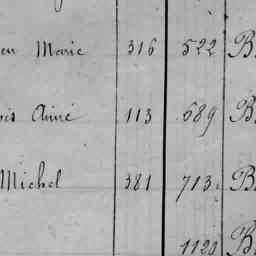 en Marie 316 522 B
ois Aimé 113 689 B
Michel 381 713 B
1120 B